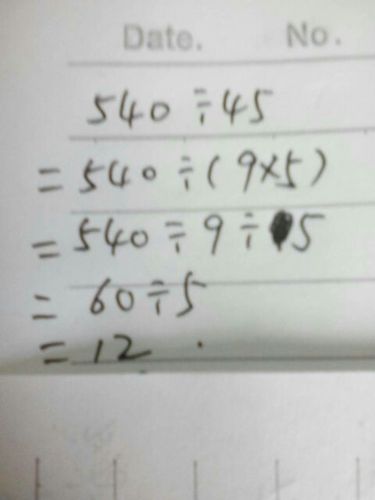 Date. No.
540÷45
=540÷(9×5)
=540÷9÷5
=60÷5
=12.